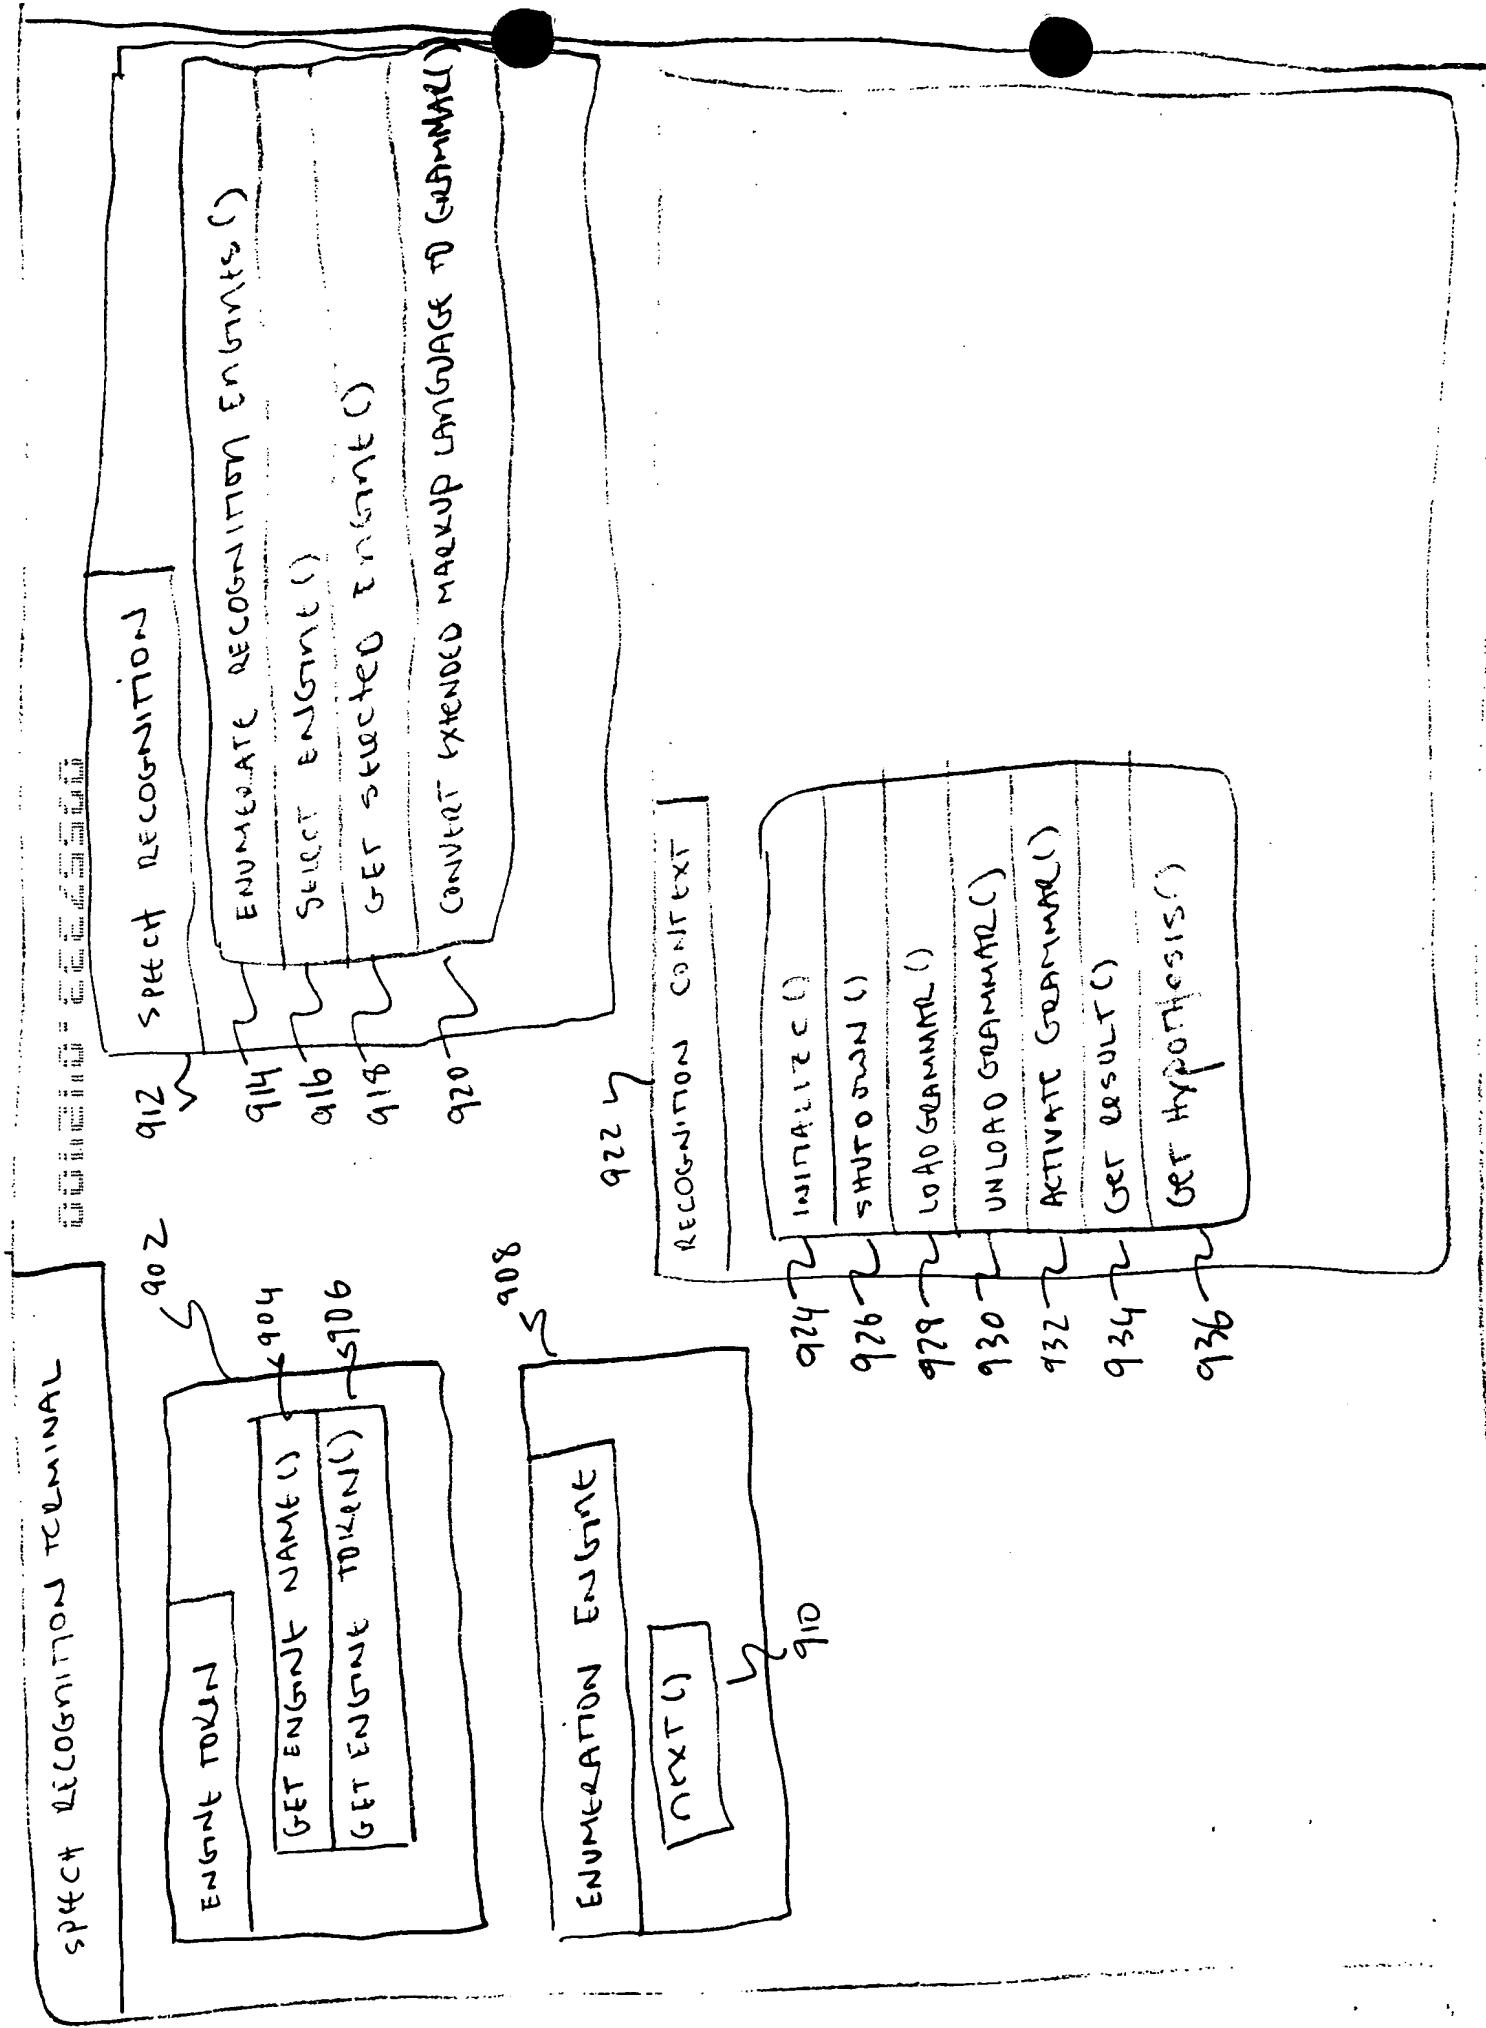 SPEECH RECOGNITION TERMINAL
ENGINE TOKEN
902
GET ENGINE NAME()
904
GET ENGINE TOKEN()
906
ENUMERATION ENGINE
908
NEXT()
910
912
SPEECH RECOGNITION
914
ENUMERATE RECOGNITION ENGINES()
916
SELECT ENGINE()
918
GET SELECTED ENGINE()
920
CONVERT EXTENDED MARKUP LANGUAGE TO GRAMMAR()
922
RECOGNITION CONTEXT
924
INITIALIZE()
926
SHUTDOWN()
928
LOAD GRAMMAR()
930
UNLOAD GRAMMAR()
932
ACTIVATE GRAMMAR()
934
GET RESULT()
936
GET HYPOTHESIS()